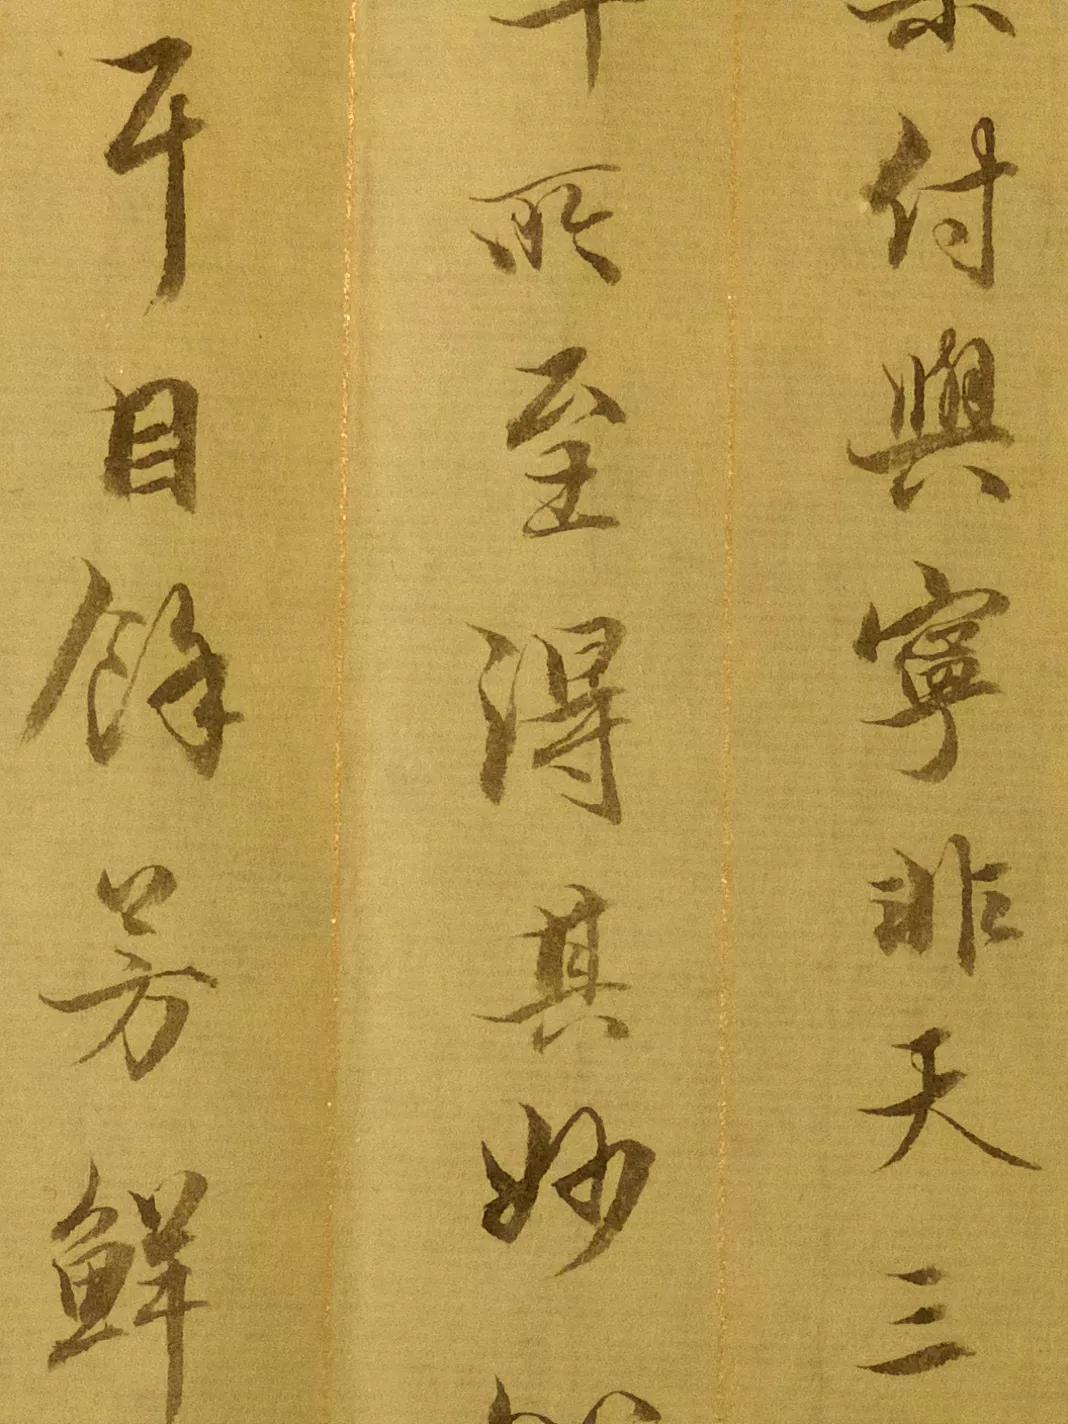 付與寧非天三
所至得其妙
耳目餘芳鮮